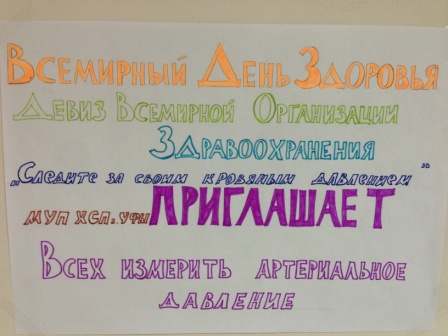 Всемирный День Здоровья
Девиз Всемирной Организации
Здравоохранения
„Следите за своим кровяным давлением"
МУП ХСП г. Уфы ПРИГЛАШАЕТ
Всех измерить артериальное
давление